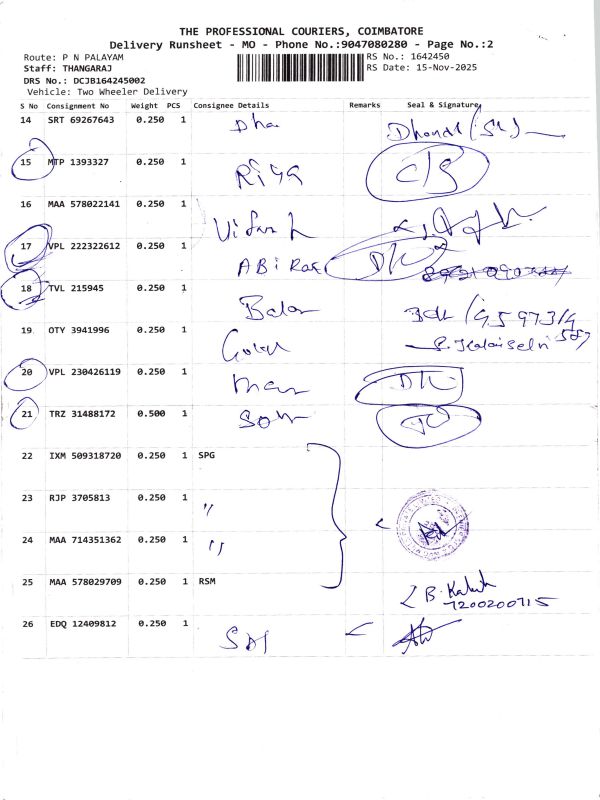 THE PROFESSIONAL COURIERS, COIMBATORE
Delivery Runsheet - MO - Phone No.:9047080280 - Page No.:2
Route: P N PALAYAM
Staff: THANGARAJ
DRS No.: DCJB164245002
Vehicle: Two Wheeler Delivery
RS No.: 1642450
RS Date: 15-Nov-2025
S No Consignment No Weight PCS Consignee Details Remarks Seal & Signature
14 SRT 69267643 0.250 1 Dha
15 MTP 1393327 0.250 1 Riya
16 MAA 578022141 0.250 1
17 VPL 222322612 0.250 1 ABi Ram
18 TVL 215945 0.250 1 Balan
19 OTY 3941996 0.250 1 S. Kalaiselvi
20 VPL 230426119 0.250 1
21 TRZ 31488172 0.500 1
22 IXM 509318720 0.250 1 SPG
23 RJP 3705813 0.250 1 "
24 MAA 714351362 0.250 1 "
25 MAA 578029709 0.250 1 RSM B. 7200200715
26 EDQ 12409812 0.250 1